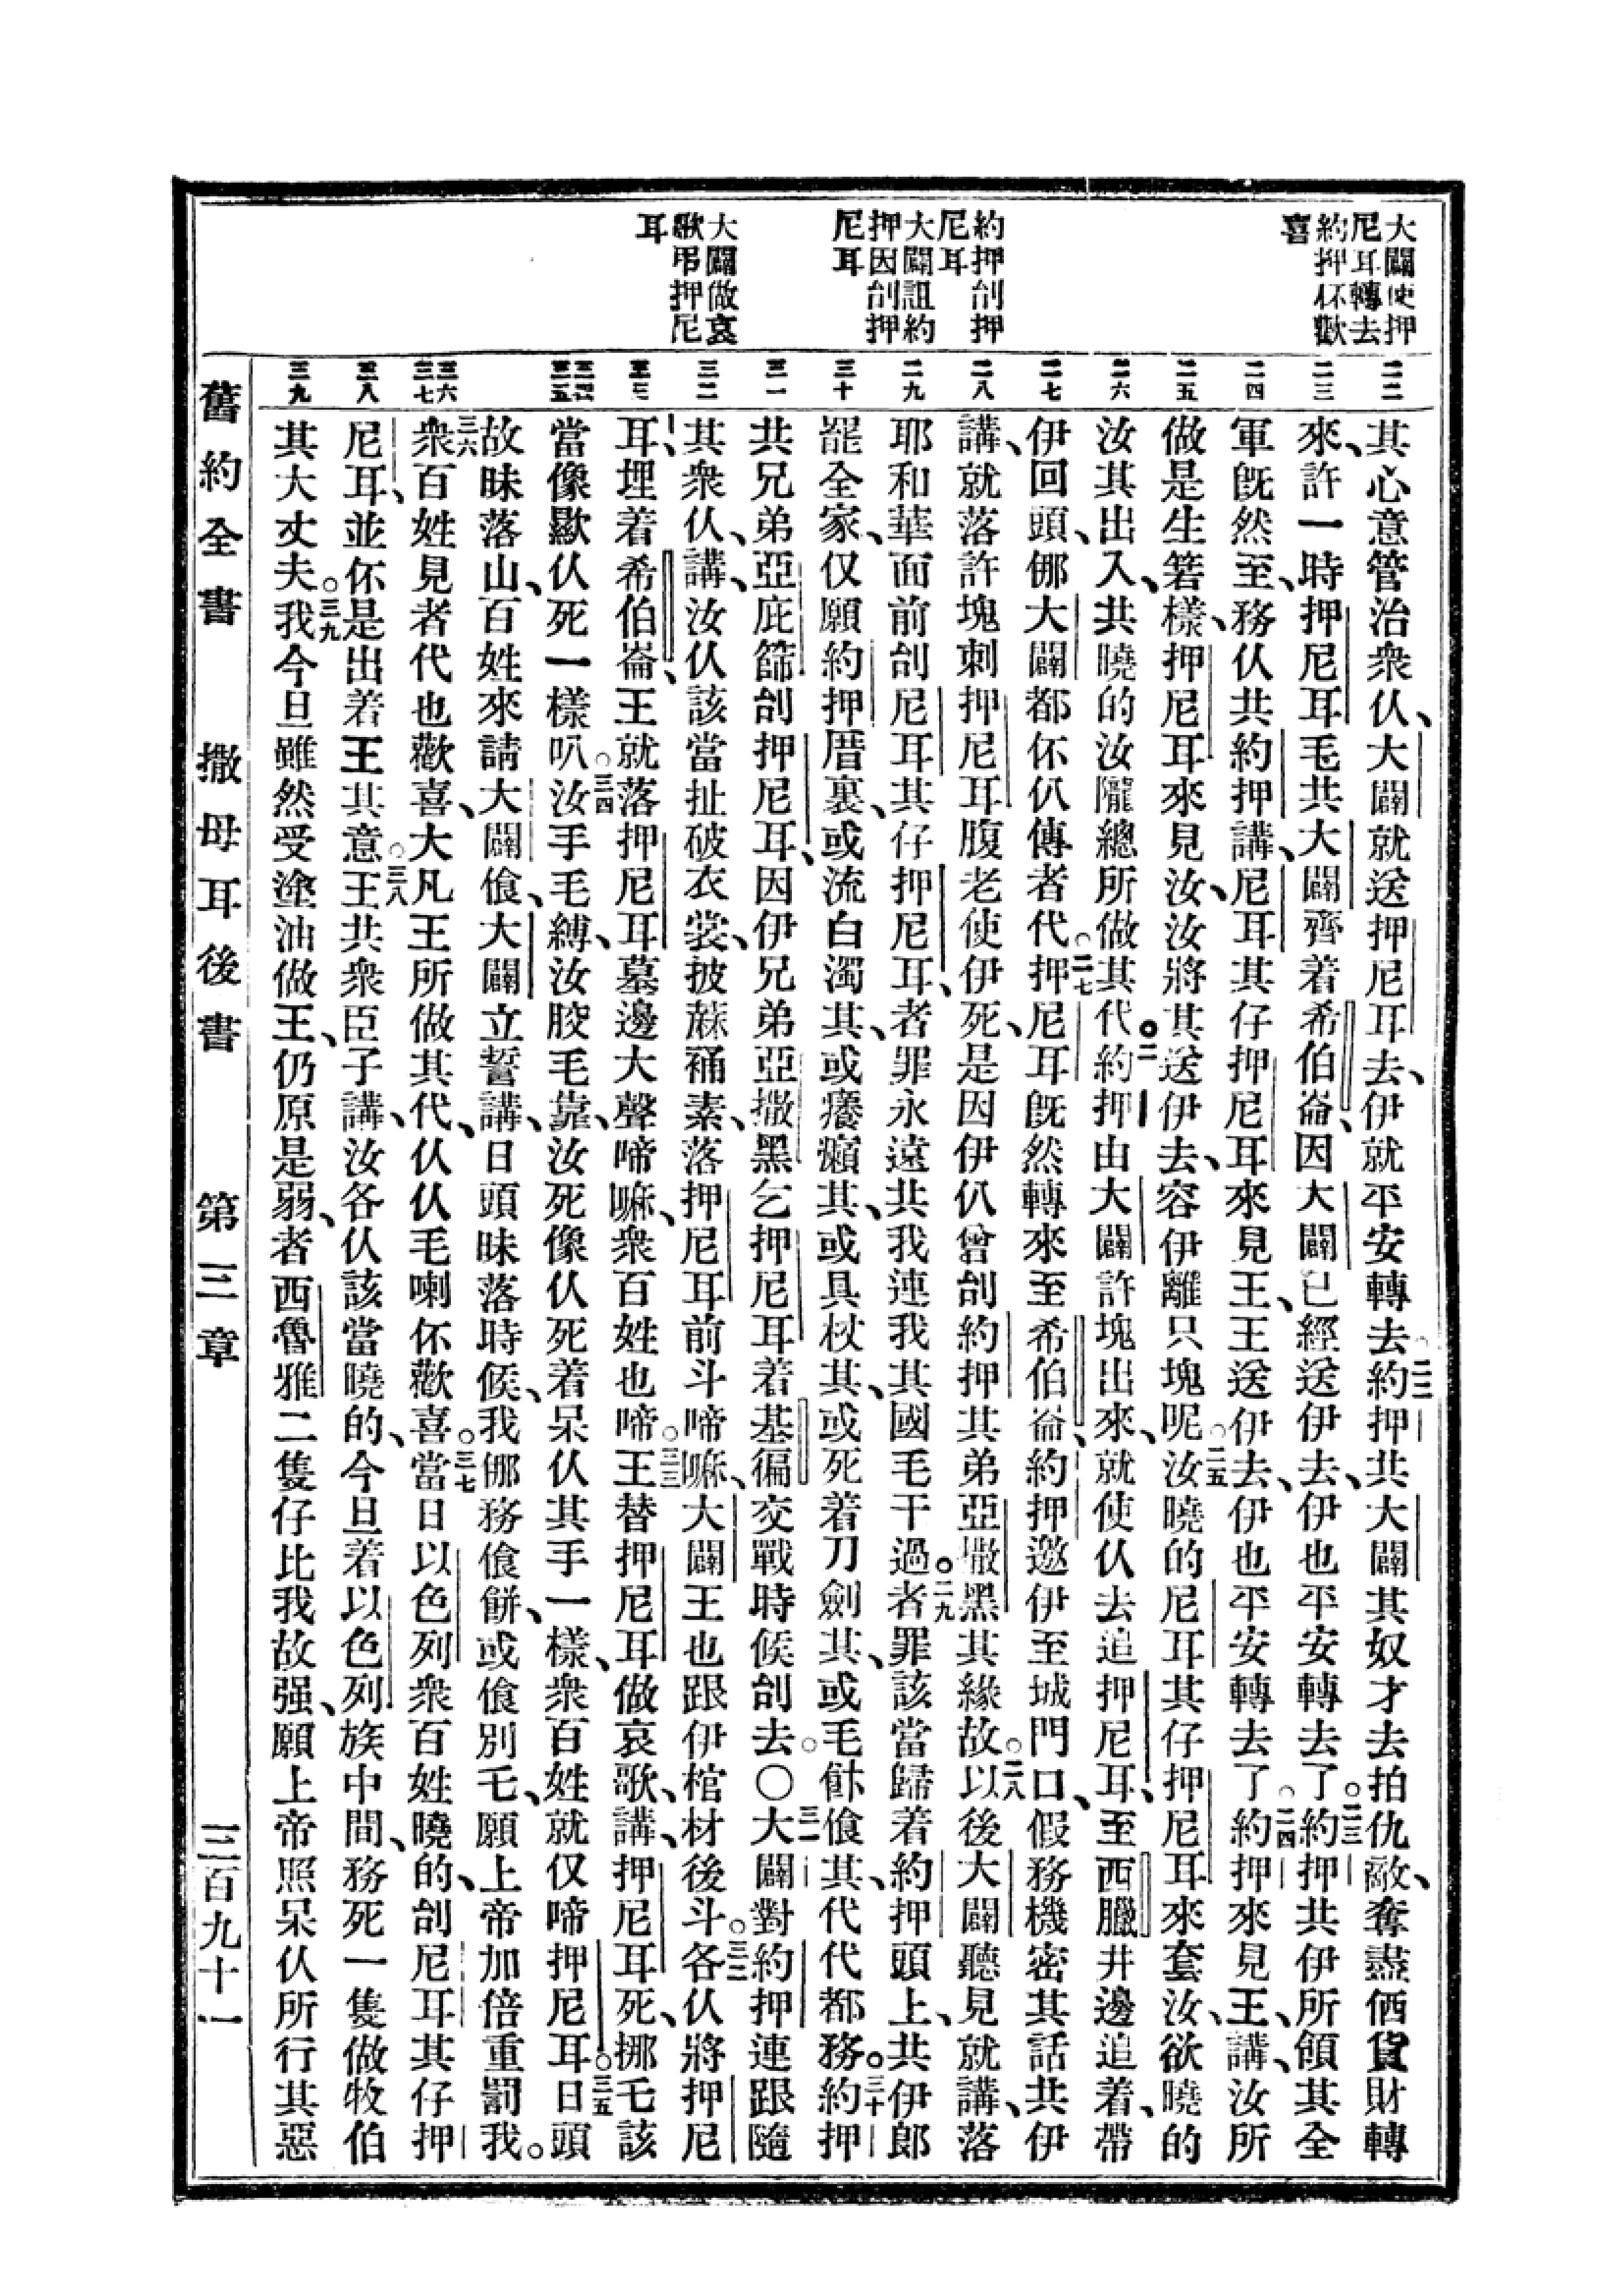 大闢使押
尼耳轉去
約押伓歡
喜
約押刣押
尼耳
大闢詛約
押因刣押
尼耳
大闢做哀
歌弔押尼
耳
二二
二三
二四
二五
二六
二七
二八
二九
三十
三一
三二
三三
三四
三五
三六
三七
三八
三九
其心意管治衆仈、大闢就送押尼耳去、伊就平安轉去○二二約押共大闢其奴才去拍仇敵、奪盡㑚貨財轉
來、許一時押尼耳毛共大闢齊着希伯崙、因大闢已經送伊去、伊也平安轉去了○二三約押共伊所領其全
軍旣然至、務仈共約押講、尼耳其仔押尼耳來見王、王送伊去、伊也平安轉去了○二四約押來見王、講、汝所
做是生箬樣、押尼耳來見汝、汝將其送伊去、容伊離只塊呢○二五汝曉的尼耳其仔押尼耳來套汝、欲曉的
汝其出入、共曉的汝隴總所做其代○二六約押由大闢許塊出來、就使仈去追押尼耳、至西臘井邊追着、帶
伊回頭、挪大闢都伓仈傳者代○二七押尼耳旣然轉來至希伯崙、約押邀伊至城門口、假務機密其話共伊
講、就落許塊刺押尼耳腹老使伊死、是因伊仈曾刣約押其弟亞撒黑其緣故○二八以後大闢聽見就講、落
耶和華面前刣尼耳其仔押尼耳、者罪永遠共我連我其國毛干過○二九者罪該當歸着約押頭上、共伊郎
罷全家、仅願約押厝裏、或流白濁其、或癢癩其、或具杖其、或死着刀劍其、或毛𩚨飡其、代代都務○三十約押
共兄弟亞庇篩刣押尼耳、因伊兄弟亞撒黑乞押尼耳着基徧交戰時候刣去○〇三一大闢對約押連跟隨
其衆仈、講、汝仈該當扯破衣裳、披蔴裲素、落押尼耳前斗啼嘛、大闢王也跟伊棺材後斗○三二各仈將押尼
耳、埋着希伯崙、王就落押尼耳墓邊大聲啼嘛、衆百姓也啼○三三王替押尼耳做哀歌、講、押尼耳死、挪乇該
當像歞仈死一樣○三四叭汝手毛縛、汝骹毛靠、汝死像仈死着呆仈其手一樣、衆百姓就仅啼押尼耳○三五日頭
故昧落山、百姓來請大闢飡、大闢立誓講、日頭昧落時候、我挪務飡餅、或飡別乇、願上帝加倍重罰我。
三六衆百姓見者代也歡喜、大凡王所做其代、仈仈毛喇伓歡喜○三七當日以色列衆百姓曉的、刣尼耳其仔押
尼耳、並伓是出着王其意○三八王共衆臣子講、汝各仈該當曉的、今旦着以色列族中間、務死一隻做牧伯
其大丈夫○三九我今旦雖然受塗油做王、仍原是弱、者西魯雅二隻仔比我故强、願上帝照呆仈所行其惡
舊約全書　撒母耳後書　第三章　三百九十一